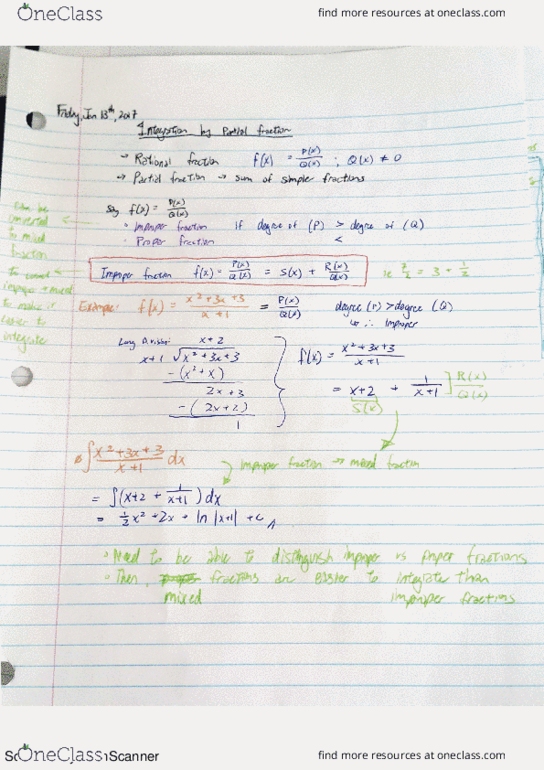 OneClass
find more resources at oneclass.com
Friday, Jan 13th, 2017
Integration by Partial fraction
→ Rational fraction f(x) = P(x)/Q(x) ; Q(x) ≠ 0
→ Partial fraction → sum of simpler fractions
Say f(x) = P(x)/Q(x)
• Improper fraction if degree of (P) > degree of (Q)
• Proper fraction <
converted
to mixed
fraction
Improper fraction f(x) = P(x)/Q(x) = S(x) + R(x)/Q(x)
= 3 + 1/2
to convert
improper → mixed
to make it
easier to
integrate
Example: f(x) = x²+3x+3/x+1 = P(x)/Q(x) degree (P) > degree (Q)
∴ Improper
Long Division
x+2
x+1 √x²+3x+3
-(x²+x)
2x+3
-(2x+2)
1
f(x) = x²+3x+3/x+1
= x+2 + 1/x+1 ] R(x)/Q(x)
S(x)
∫ x²+3x+3/x+1 dx
Improper fraction → mixed fraction
= ∫(x+2 + 1/x+1) dx
= 1/2x² + 2x + ln |x+1| + C
• Need to be able to distinguish improper vs proper fractions
• Then, mixed fractions are easier to integrate than
improper fractions
Scanner
OneClass
find more resources at oneclass.com